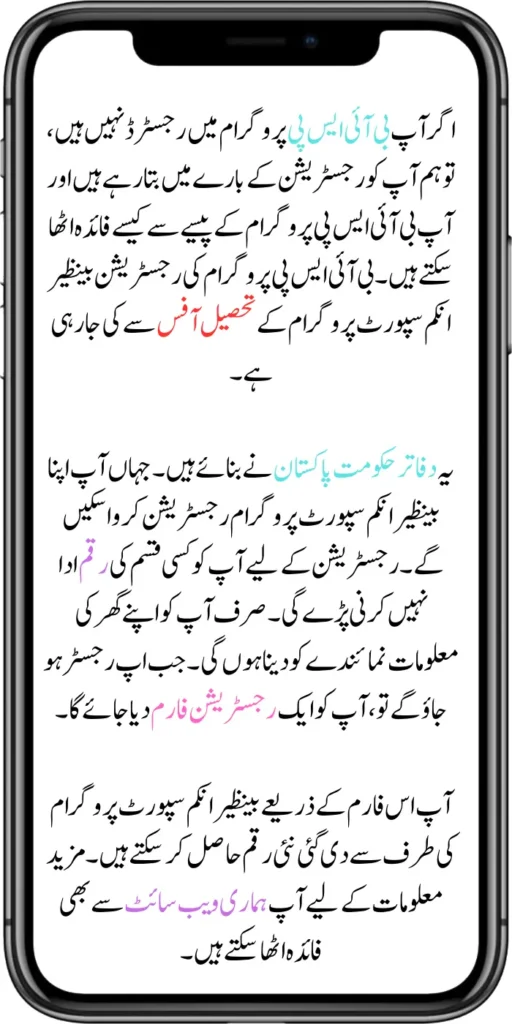 اگر آپ بی آئی ایس پی پروگرام میں رجسٹرڈ نہیں ہیں،
تو ہم آپ کو رجسٹریشن کے بارے میں بتا رہے ہیں اور
آپ بی آئی ایس پی پروگرام کے پیسے سے کیسے فائدہ اٹھا
سکتے ہیں۔ بی آئی ایس پی پروگرام کی رجسٹریشن بینظیر
انکم سپورٹ پروگرام کے تحصیل آفس سے کی جا رہی
ہے۔
یہ دفاتر حکومت پاکستان نے بنائے ہیں۔ جہاں آپ اپنا
بینظیر انکم سپورٹ پروگرام رجسٹریشن کروا سکیں
گے۔ رجسٹریشن کے لیے آپ کو کسی قسم کی رقم ادا
نہیں کرنی پڑے گی۔ صرف آپ کو اپنے گھر کی
معلومات نمائندے کو دینا ہوں گی۔ جب اپ رجسٹر ہو
جاؤ گے تو، آپ کو ایک رجسٹریشن فارم دیا جائے گا۔
آپ اس فارم کے ذریعے بینظیر انکم سپورٹ پروگرام
کی طرف سے دی گئی نئی رقم حاصل کر سکتے ہیں۔ مزید
معلومات کے لیے آپ ہماری ویب سائٹ سے بھی
فائدہ اٹھا سکتے ہیں۔